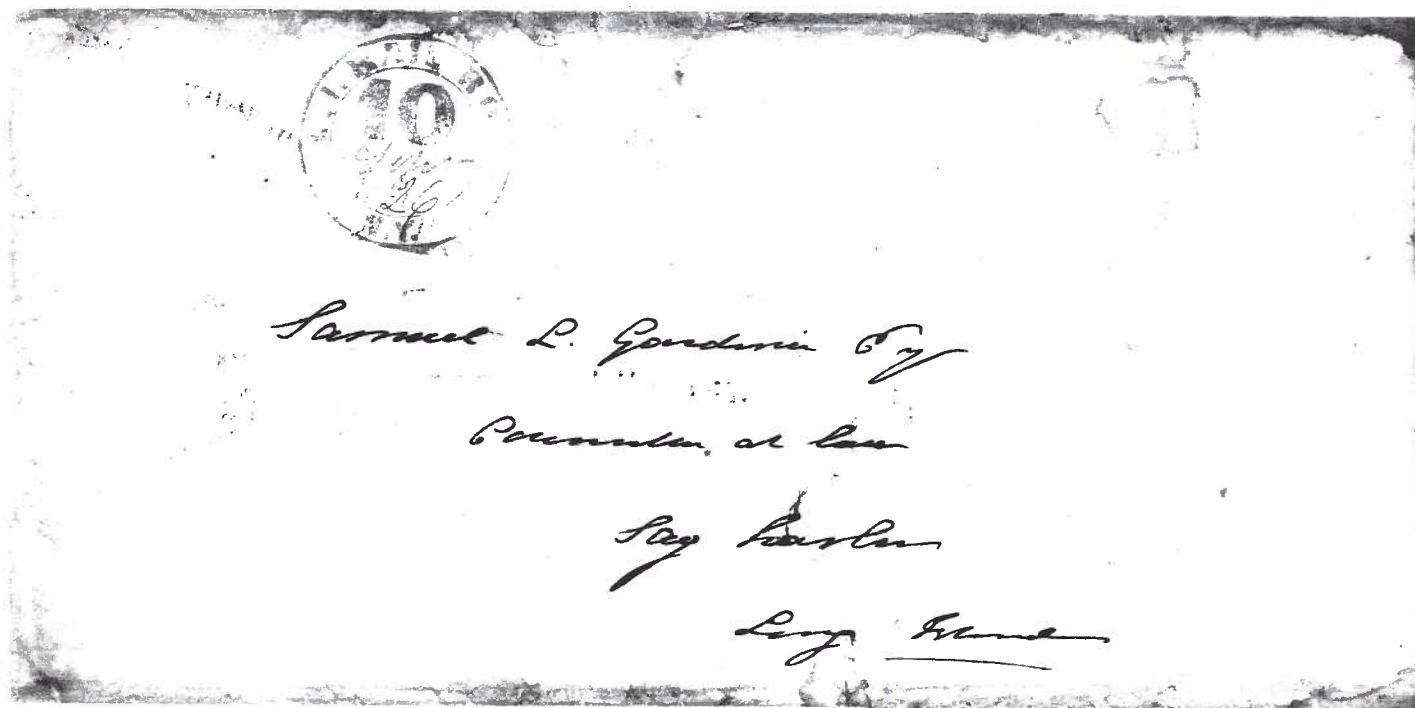 10
26
N.Y.
Samuel L. Gardiner Esq
Counsellor at law
Sag Harbor
Long Island